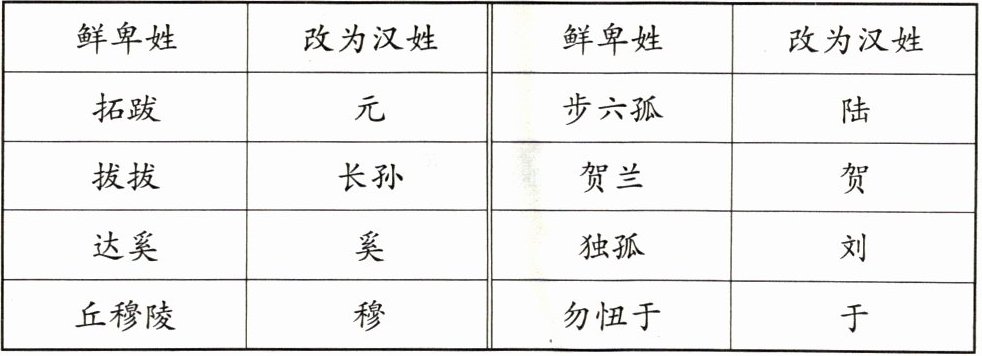 鲜卑姓 改为汉姓 鲜卑姓 改为汉姓
拓跋 元 步六孤 陆
拔拔 长孙 贺兰 贺
达奚 奚 独孤 刘
丘穆陵 穆 勿忸于 于